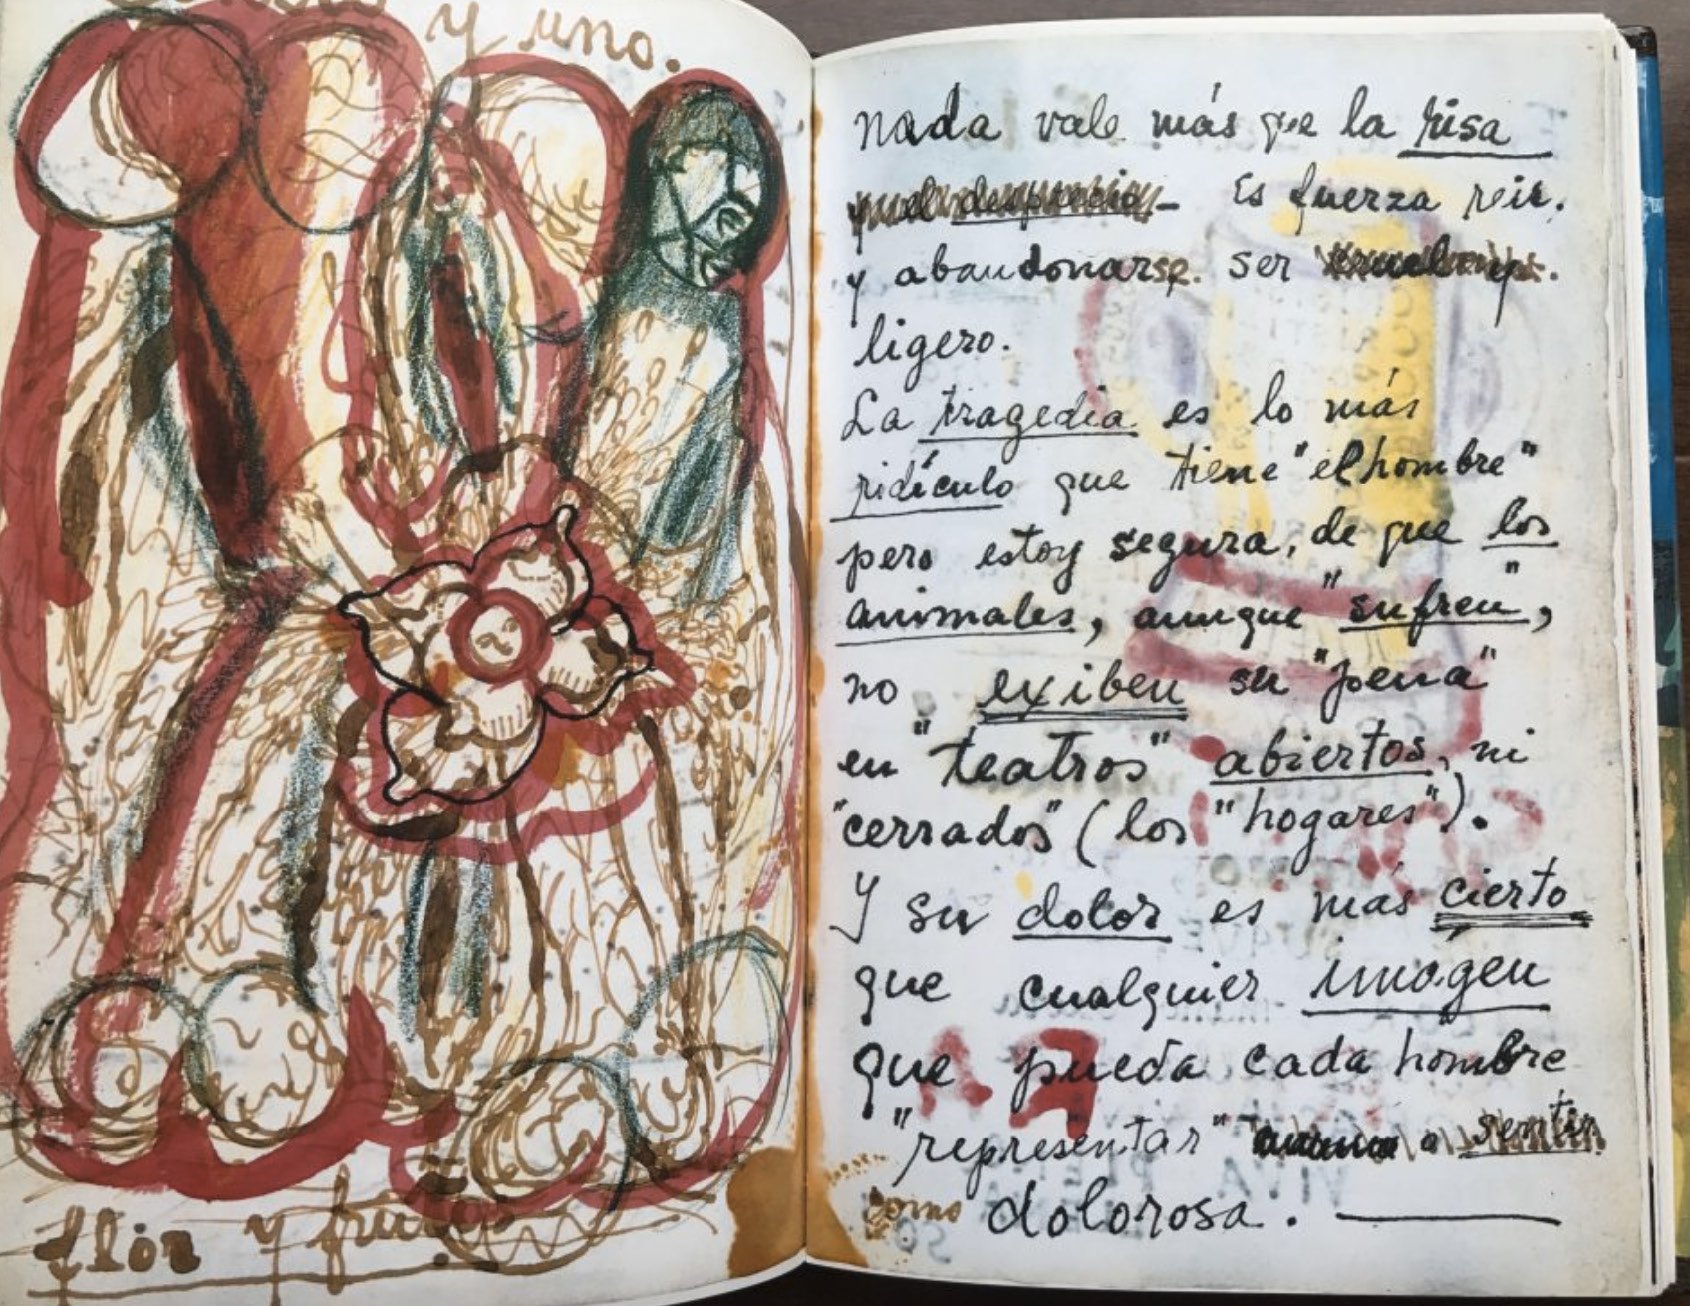 y uno.
flor y fruto
nada vale más que la risa
y el desprecio – Es fuerza reir.
y abandonarse. ser cruel y.
ligero.
La tragedia es lo más
ridículo que tiene "el hombre"
pero estoy segura, de que los
animales, aunque "sufren",
no exiben su "pena"
en "teatros" abiertos, ni
"cerrados" (los "hogares").
Y su dolor es más cierto
que cualquier imagen
que pueda cada hombre
"representar" o sentir
como dolorosa. —